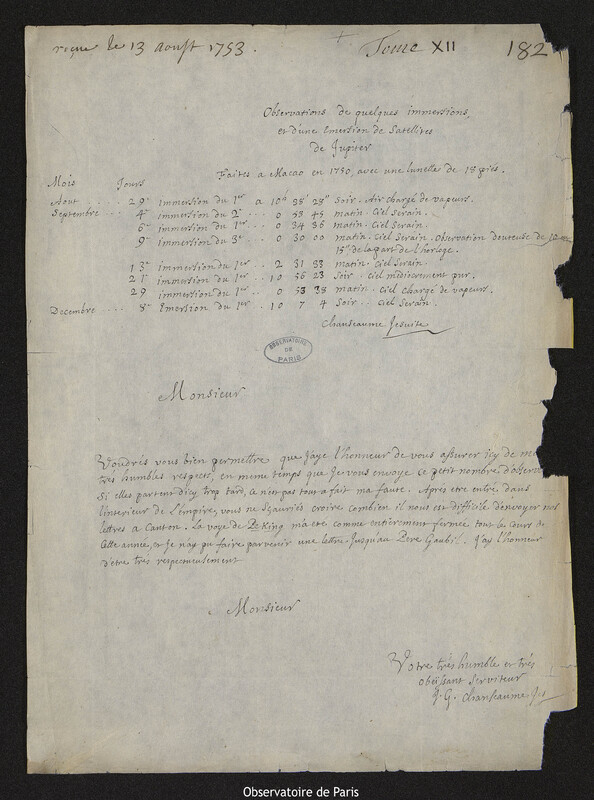 reçue le 13 aoust 1753. Tome XII 182
Observations de quelques immersions,
et d'une Emersion de Satellites
de Jupiter
Faites a Macao en 1750, avec une lunelle de 18 pies.
Mois Jours
Aout ... 29e immersion du 1er a 10h 38' 28" Soir. Air chargé de vapeurs.
Septembre ... 4e immersion du 2e .. 0 53 45 matin. Ciel Serain.
6e immersion du 1er .. 0 34 36 matin. Ciel Serain.
9e immersion du 3e .. 0 30 00 matin. Ciel Serain. Observation douteuse de
15" de la part de l'horloge.
13e immersion du 1er .. 2 31 33 matin. Ciel Serain.
21e immersion du 1er .. 10 56 23 Soir. Ciel mediocrement pur.
29 immersion du 1er .. 0 53 38 matin. Ciel chargé de vapeurs.
Decembre ... 8e Emersion du 1er .. 10 7 4 Soir .. Ciel Serain.
Chanseaume Jesuite
OBSERVATOIRE
DE
PARIS
Monsieur
Voudrés vous bien permettre que j'aye l'honneur de vous assurer icy de me
très humbles respects, en meme temps que je vous envoye ce petit nombre d'observa
Si elles partent d'icy trop tard, ce n'est pas tout a fait ma faute. Après etre entré dans
l'interieur de l'empire, vous ne sçauriés croire combien il nous est difficile d'envoyer nos
lettres a Canton. La voye de Peking m'a eté comme entierement fermée tout le cours de
cette année, et je n'ay pu faire parvenir une lettre jusqu'au Pere Gaubil. J'ay l'honneur
d'etre très respectueusement
Monsieur
Votre très humble et très
obeïssant Serviteur
J. G. Chanseaume Jes
Observatoire de Paris